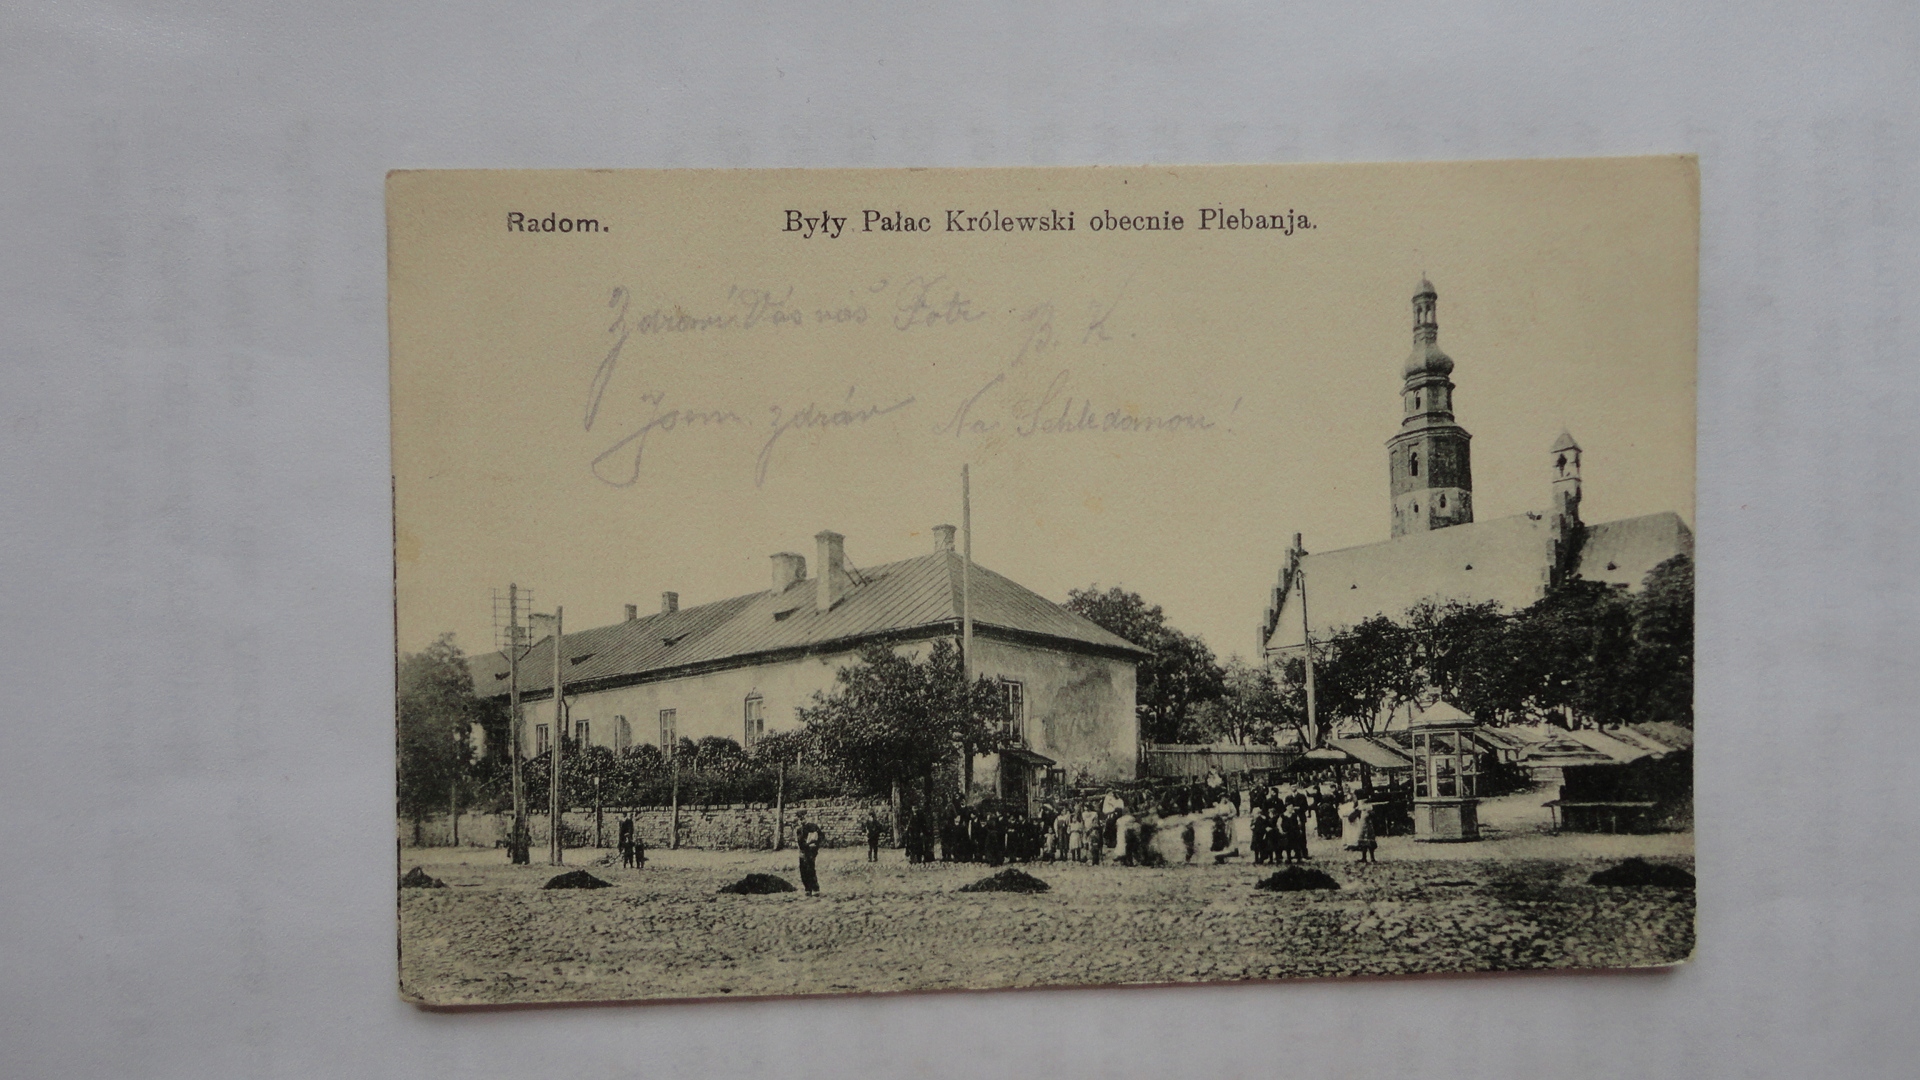 Radom. Były Pałac Królewski obecnie Plebanja.
Zdraví Vás váš Fotr B. K.
Jsem zdráv Na Schledanou!